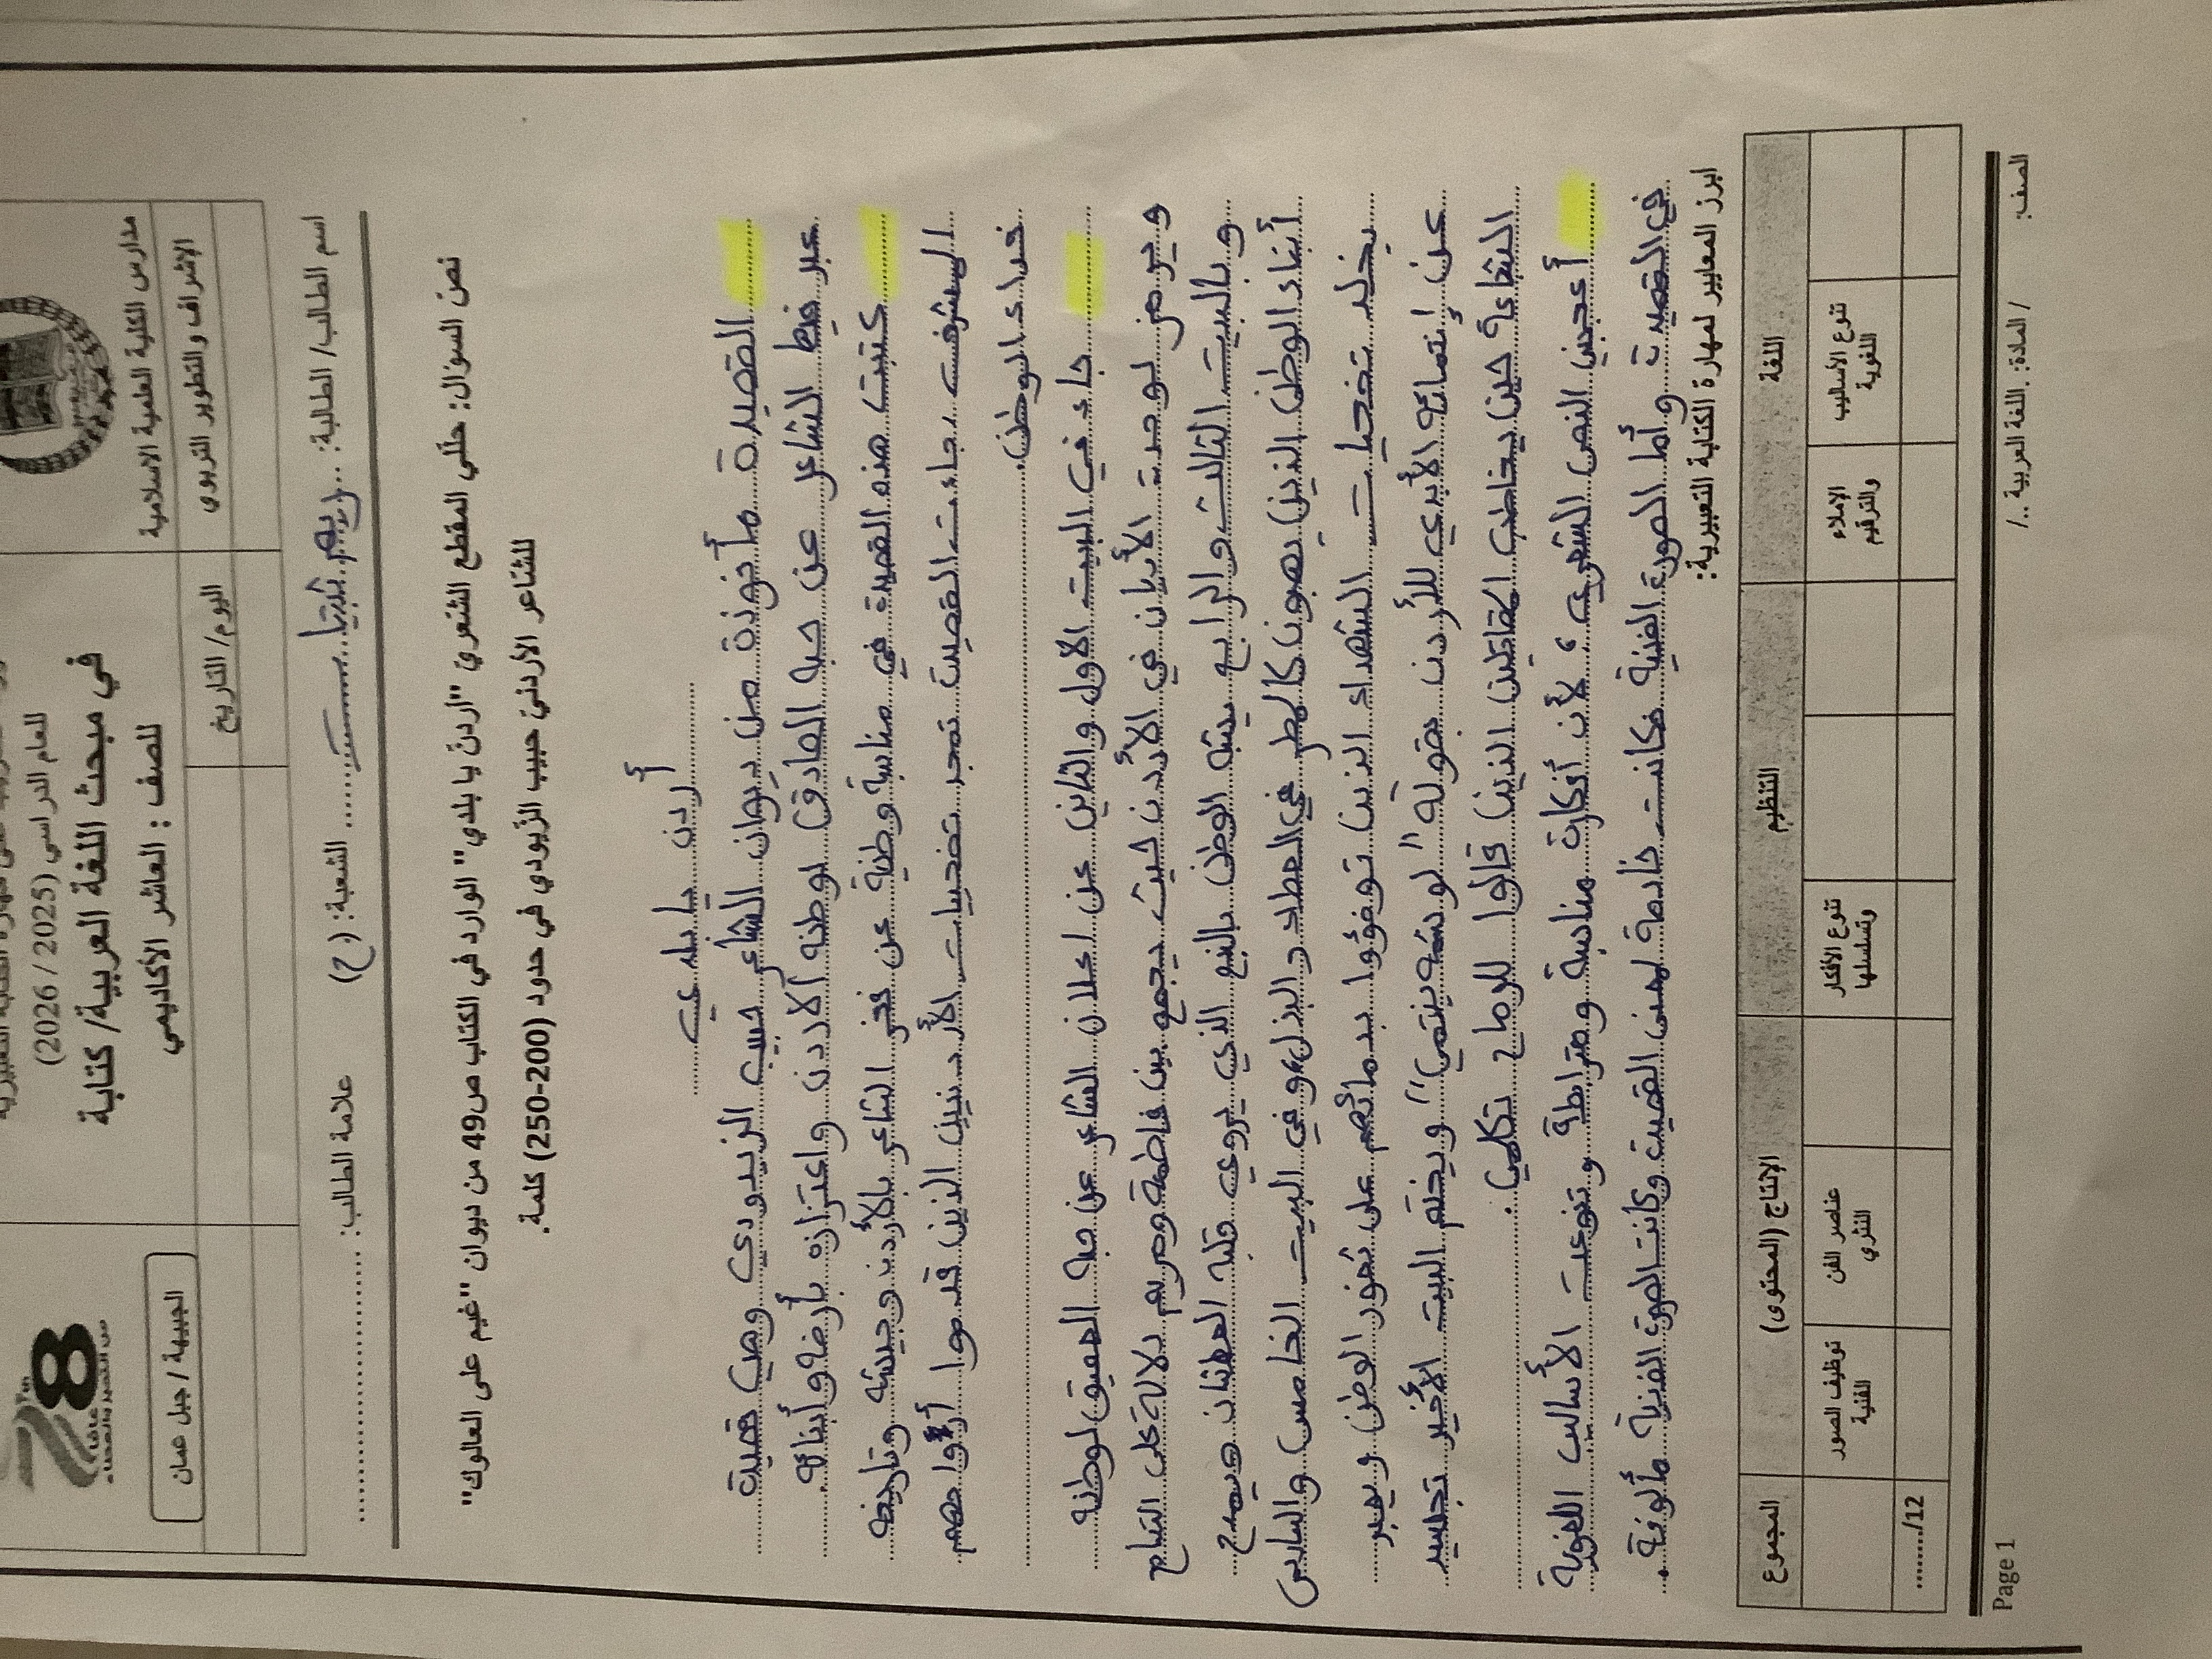 مدارس الكلية العلمية الاسلامية
الإشراف والتطوير التربوي
للعام الدراسي (2025 / 2026)
في مبحث اللغة العربية/ كتابة
للصف : العاشر الأكاديمي
اليوم/ التاريخ
الجبيهة / جبل عمان
اسم الطالب/ الطالبة: ريم الشعبة: (ح) علامة الطالب:
نص السؤال: حلّلي المقطع الشعري "أردنّ يا بلدي" الوارد في الكتاب ص49 من ديوان "غيم على العالوك"
للشاعر الأردنيّ حبيب الزّيودي في حدود (200-250) كلمة.
أردن يا بلدي
القصيدة مأخوذة من ديوان الشاعر حبيب الزيودي وهي قصيدة
عبر فيها الشاعر عن حبه الصادق لوطنه الأردن واعتزازه بأرضه وأبنائه.
كتبت هذه القصيدة في مناسبة وطنية عن فخر الشاعر بالأردن وجيشه وتاريخه
المشرف، جاءت القصيدة تمجد تضحيات الأردنيين الذين قدموا أرواحهم
فداء الوطن.
جاء في البيت الاول والثاني عن اعلان الشاعر عن حبه العميق لوطنه
ويرمز لوحدة الأديان في الأردن حيث يجمع بين فاطمة ومريم دلالة على التسامح
وبالبيت الثالث والرابع يشبه الوطن بالنبع الذي يروي قلبه العطشان ويمدح
أبناء الوطن الذين يهبون كالمطر في العطاء والبذل، وفي البيت الخامس والسادس
يخلد تضحيات الشهداء الذين توضؤوا بدمائهم على ثغور الوطن ويعبر
عن إنتمائه الأبدي للأردن بقوله "لوشمه ينتمي" ويختم البيت الأخير بتجسيد
الشجاعة حين يخاطب المقاتلين الذين قالوا للرماح تكلمي.
أعجبني النص الشعري؛ لأن أفكاره مناسبة ومترابطة وتنوعت الأساليب اللغوية
في القصيدة وأما الصورة الفنية فكانت خادمة لمعنى القصيدة وكانت الصورة الفنية مألوفة.
ابرز المعايير لمهارة الكتابة التعبيرية:
اللغة التنظيم الإنتاج (المحتوى) المجموع
تنوع الأساليب اللغوية الإملاء والترقيم تنوع الأفكار وتسلسلها عناصر الفن النثري توظيف الصور الفنية
........./12
الصف: / المادة: اللغة العربية ../ Page 1